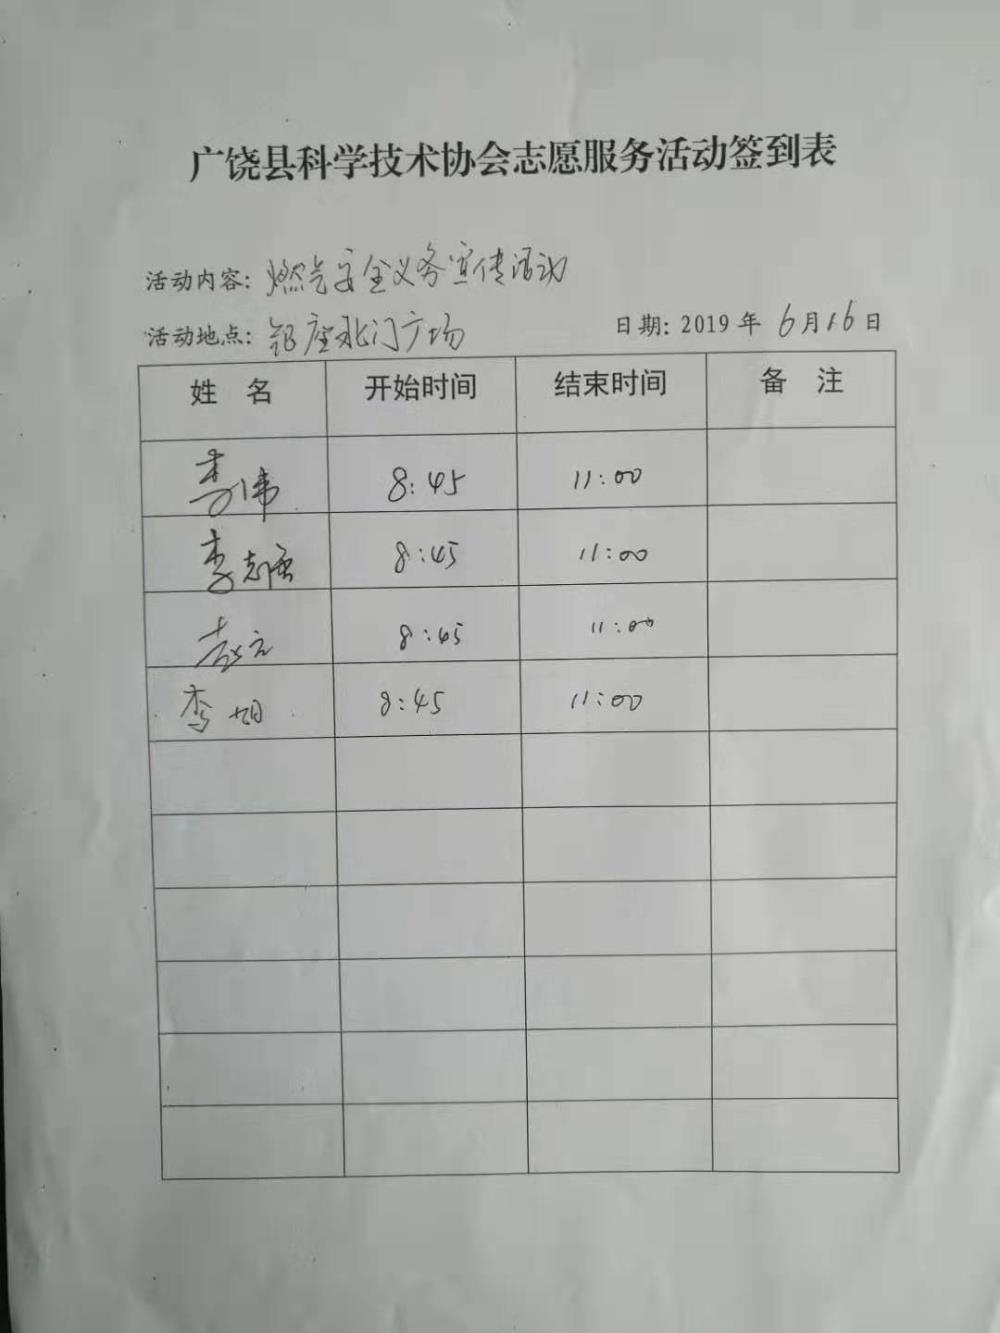 广饶县科学技术协会志愿服务活动签到表
活动内容: 燃气安全义务宣传活动
活动地点: 银座北门广场 日期: 2019 年 6月16日
姓 名 开始时间 结束时间 备 注
李伟 8:45 11:00
李志强 8:45 11:00
8:45 11:00
李旭 8:45 11:00